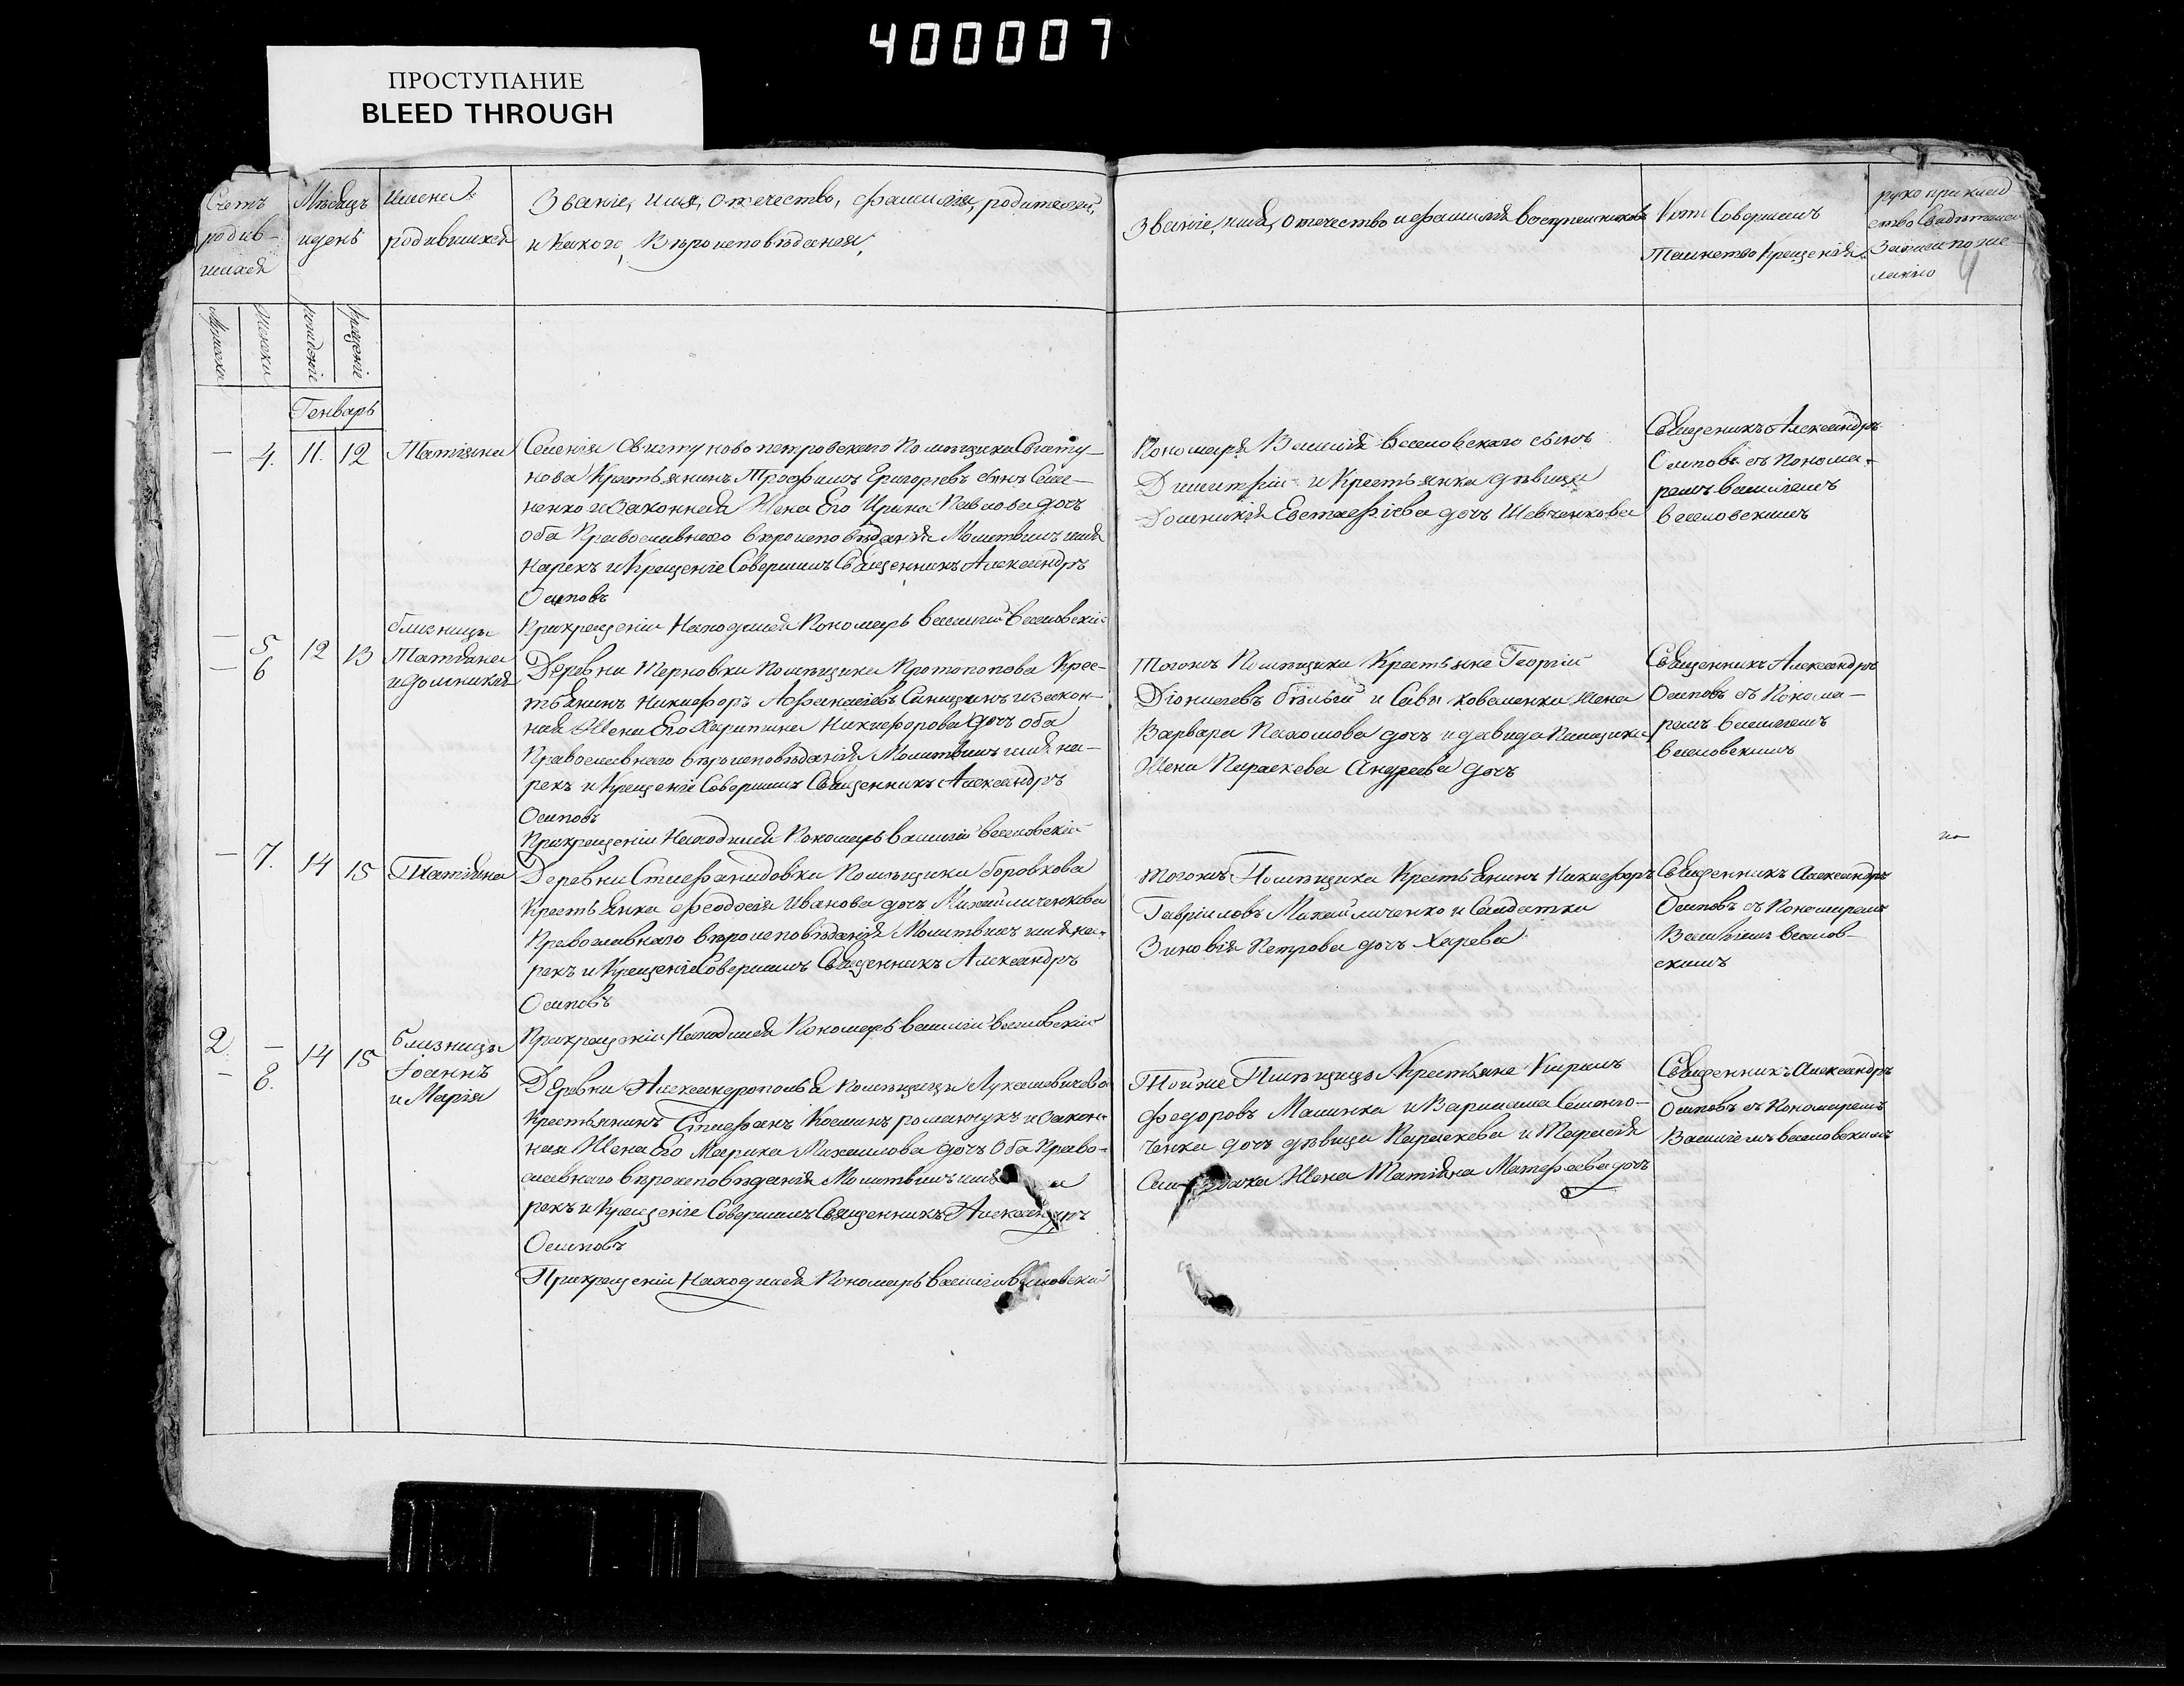 400007
ПРОСТУПАНИЕ
BLEED THROUGH
Счетъ родив-шихся
Мѣсяцъ и день
Имена родившихся
Званіе, имя, отечество, фамилія, родителей,
и какого, Вѣроисповѣданія,
Званіе, имя, отечество и фамилія воспріемниковъ
Кто Совершилъ
Таинство Крещенія
руко приклад
ство Свидѣтелей
Записи по же
ланію
4
Мужеска
Женска
рожденіе
крещеніе
Генварь
— 4. 11. 12 Татіяна
Селенія Свистуново петровскаго Помѣщика Свисту-
нова Крестьянинъ Трофимъ Григорьевъ сынъ Семе-
ненко и Законная Жена Его Ирина Павлова дочь
оба Православнаго вѣроисповѣданія Молитвилъ имя
Нарекъ и Крещеніе Совершилъ Священникъ Александръ
Осиповъ
При крещеніи Находился Пономарь василій веселовскій
Пономаря Василія веселовскаго сынъ
Димитрій и Крестьянка дѣвица
Домникія Евстафіева дочь Шевченкова
Священикъ Александръ
Осиповъ съ Понома-
ремъ василіемъ
веселовскимъ
— 5
— 6
12 13
близнецы
Татіяна
и домникія
Деревни Терновки Помѣщика Протопопова Крес-
тьянинъ Никифоръ Афанасіевъ и закон-
ная Жена Его Харитина Никифорова дочь оба
Православнаго вѣроисповѣданія Молитвилъ имя на-
рекъ и Крещеніе Совершилъ Священникъ Александръ
Осиповъ
При крещеніи Находился Пономарь василій веселовскій
Тогожъ Помѣщика Крестьяне Георгій
Діонисіевъ бѣлый и Савы коваленка жена
Варвара Пахомова дочь и давида
Жена Параскева Андреева дочь
Священникъ Александръ
Осиповъ съ Понома-
ремъ василіемъ
веселовскимъ
— 7. 14 15 Татіяна
Деревни Стефанидовки Помѣщика боровкова
Крестьянка феодосія Иванова дочь Михайличенкова
Православнаго вѣроисповѣданія Молитвилъ имя на-
рекъ и Крещеніе Совершилъ Священникъ Александръ
Осиповъ
При крещеніи Находился Пономарь василій веселовскій
тогожъ Помѣщика Крестьянинъ Никифоръ
Гавріиловъ Михайличенко и Солдатка
Зиновія Петрова дочь Харева
Священникъ Александръ
Осиповъ съ Пономаремъ
Василіемъ веселов-
скимъ
2. —
— 8.
14 15
близнецы
Іоаннъ
и Марія
Деревни Александрополья помѣщицы Лукашевичевой
Крестьянинъ Стефанъ Косминъ романчукъ и Закон-
ная Жена Его Марина Михаилова дочь Оба Право-
славнаго вѣроисповѣданія Молитвилъ имя на
рекъ и Крещеніе Совершилъ Священникъ Александръ
Осиповъ
При крещеніи Находился Пономарь василій веселовскій
Той же Помѣщицы Крестьяне Кирилъ
федоровъ Малинка и Варлаама Семеню-
ченка дочь дѣвица Параскева и Тарасія
Жена Татіяна Матфеева дочь
Священникъ Александръ
Осиповъ съ Пономаремъ
Василіемъ веселовскимъ